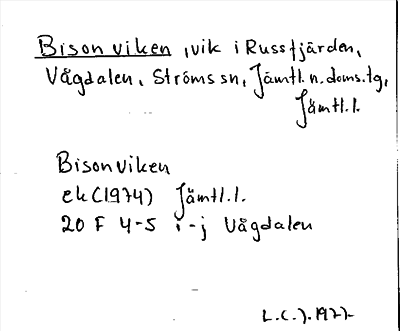 Bisonviken, vik i Russfjärden,
Vågdalen, Ströms sn, Jämtl. n. doms.tg,
Jämtl.l.
Bisonviken
ek (1974) Jämtl.l.
20 F 4-5 i-j Vågdalen
L.C.J. 1977